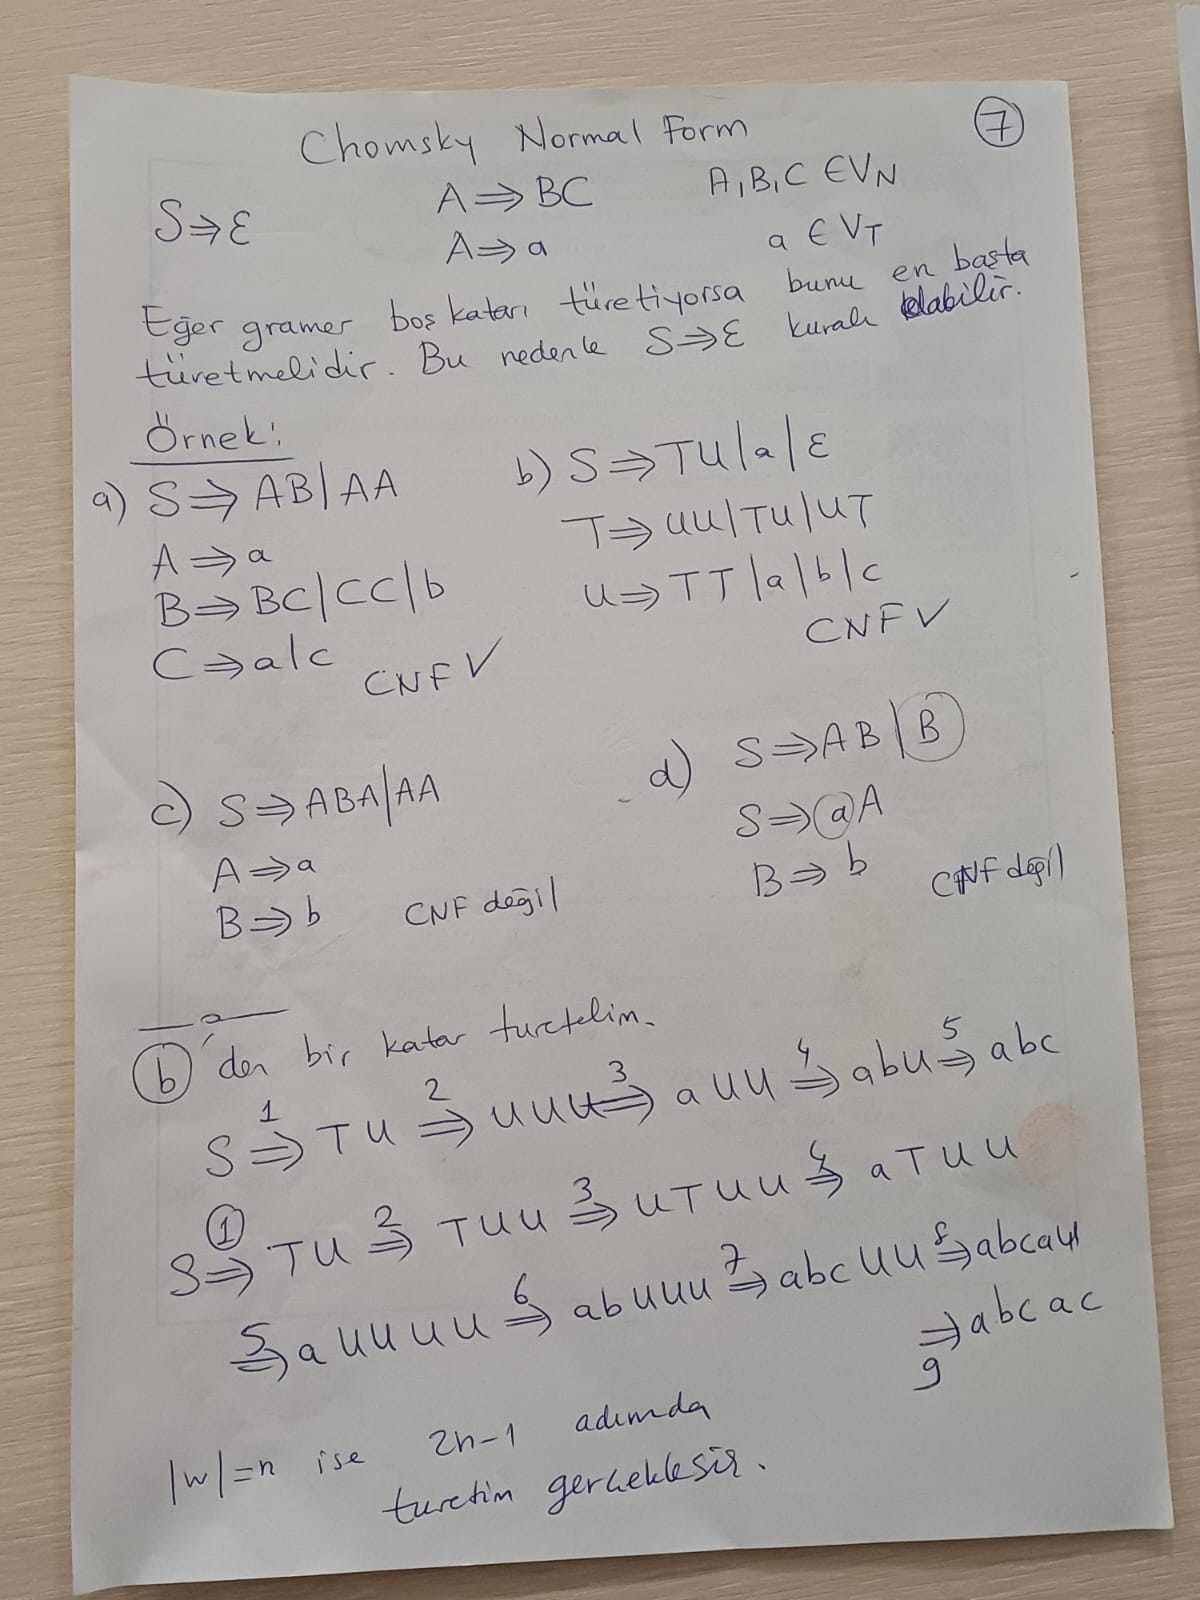 7
Chomsky Normal Form
S⇒ε A⇒BC A,B,C ∈VN
A⇒a a ∈ VT
Eğer gramer boş katarı türetiyorsa bunu en başta
türetmelidir. Bu nedenle S⇒ε kuralı olabilir.
Örnek:
a) S⇒AB|AA
A⇒a
B⇒BC|CC|b
C⇒a|c CNF ✓
b) S⇒TU|a|ε
T⇒UU|TU|UT
U⇒TT|a|b|c
CNF ✓
c) S⇒ABA|AA
A⇒a
B⇒b CNF değil
d) S⇒AB|B
S⇒aA
B⇒b CNF değil
b'den bir katar turetelim.
S 1⇒ TU 2⇒ UUU 3⇒ aUU 4⇒ abU 5⇒ abc
S 1⇒ TU 2⇒ TUU 3⇒ UTUU 4⇒ aTUU
5⇒ aUUUU 6⇒ abUUU 7⇒ abcUU 8⇒ abcaU
9⇒ abcac
|w|=n ise 2n-1 adımda
turetim gerçekleşir.